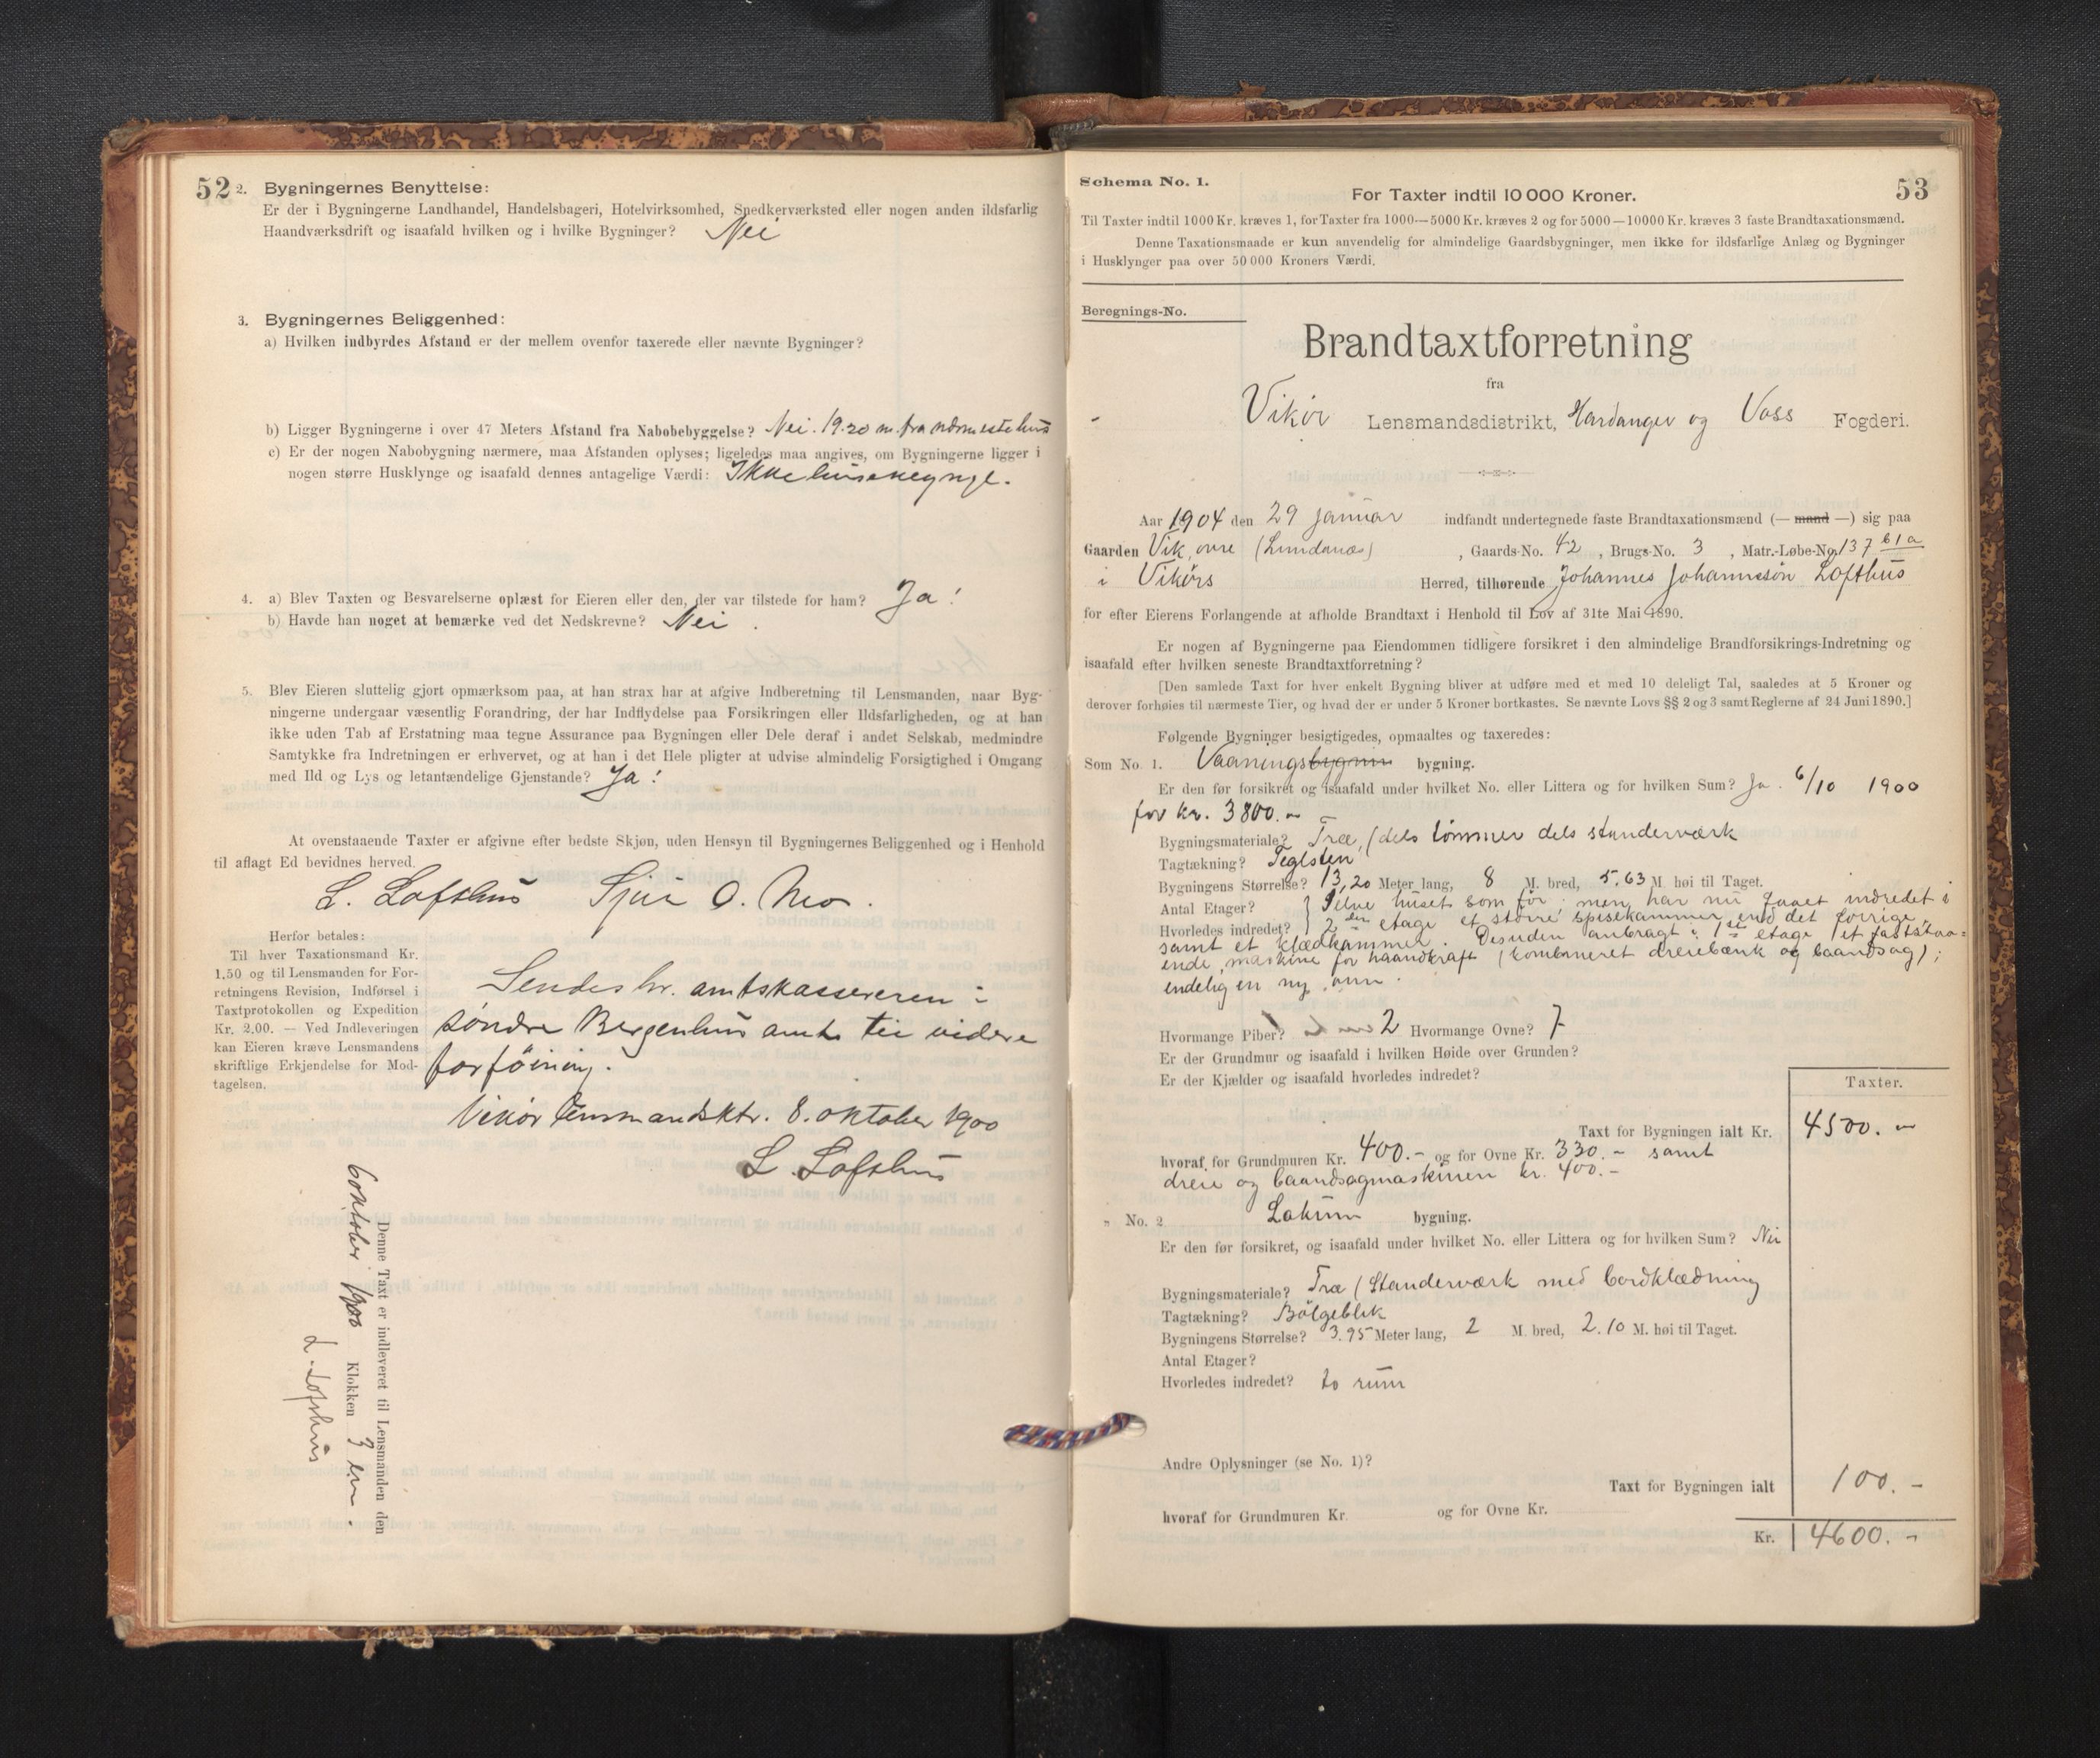 52
2. Bygningernes Benyttelse:
Er der i Bygningerne Landhandel, Handelsbageri, Hotelvirksomhed, Snedkerværksted eller nogen anden ildsfarlig
Haandværksdrift og isaafald hvilken og i hvilke Bygninger? Nei
3. Bygningernes Beliggenhed:
a) Hvilken indbyrdes Afstand er der mellem ovenfor taxerede eller nævnte Bygninger?
b) Ligger Bygningerne i over 47 Meters Afstand fra Nabobebyggelse? Nei. 19-20 m. fra nærmeste hus
c) Er der nogen Nabobygning nærmere, maa Afstanden oplyses; ligeledes maa angives, om Bygningerne ligger i
nogen større Husklynge og isaafald dennes antagelige Værdi: Ikke huseklynge.
4. a) Blev Taxten og Besvarelserne oplæst for Eieren eller den, der var tilstede for ham? Ja!
b) Havde han noget at bemærke ved det Nedskrevne? Nei.
5. Blev Eieren sluttelig gjort opmærksom paa, at han strax har at afgive Indberetning til Lensmanden, naar Byg-
ningerne undergaar væsentlig Forandring, der har Indflydelse paa Forsikringen eller Ildsfarligheden, og at han
ikke uden Tab af Erstatning maa tegne Assurance paa Bygningen eller Dele deraf i andet Selskab, medmindre
Samtykke fra Indretningen er erhvervet, og at han i det Hele pligter at udvise almindelig Forsigtighed i Omgang
med Ild og Lys og letantændelige Gjenstande? Ja!
At ovenstaaende Taxter er afgivne efter bedste Skjøn, uden Hensyn til Bygningernes Beliggenhed og i Henhold
til aflagt Ed bevidnes herved.
L. Lofthus Sjur O. Mo.
Herfor betales:
Til hver Taxationsmand Kr.
1,50 og til Lensmanden for For-
retningens Revision, Indførsel i
Taxtprotokollen og Expedition
Kr. 2,00. — Ved Indleveringen
kan Eieren kræve Lensmandens
skriftlige Erkjendelse for Mod-
tagelsen.
Sendes hr. amtskassereren i
søndre Bergenhus amt til videre
forføining.
Vikør lensmandsktr. 8. oktober 1900
L. Lofthus
Denne Taxt er indleveret til Lensmanden den
6 oktober 1900 Klokken 3 em.
L. Lofthus
Schema No. 1.
53
For Taxter indtil 10 000 Kroner.
Til Taxter indtil 1000 Kr. kræves 1, for Taxter fra 1000—5000 Kr. kræves 2 og for 5000—10000 Kr. kræves 3 faste Brandtaxationsmænd.
Denne Taxationsmaade er kun anvendelig for almindelige Gaardsbygninger, men ikke for ildsfarlige Anlæg og Bygninger
i Husklynger paa over 50 000 Kroners Værdi.
Beregnings-No.
Brandtaxtforretning
fra
Vikør Lensmandsdistrikt, Hardanger og Voss Fogderi.
Aar 1904 den 29 januar indfandt undertegnede faste Brandtaxationsmænd (— mand —) sig paa
Gaarden Vik, øvre (Lundanæs), Gaards-No. 42, Brugs-No. 3, Matr.-Løbe-No. 137 61a
i Vikørs Herred, tilhørende Johannes Johannesøn Lofthus
for efter Eierens Forlangende at afholde Brandtaxt i Henhold til Lov af 31te Mai 1890.
Er nogen af Bygningerne paa Eiendommen tidligere forsikret i den almindelige Brandforsikrings-Indretning og
isaafald efter hvilken seneste Brandtaxtforretning?
[Den samlede Taxt for hver enkelt Bygning bliver at udføre med et med 10 deleligt Tal, saaledes at 5 Kroner og
derover forhøies til nærmeste Tier, og hvad der er under 5 Kroner bortkastes. Se nævnte Lovs §§ 2 og 3 samt Reglerne af 24 Juni 1890.]
Følgende Bygninger besigtigedes, opmaaltes og taxeredes:
Som No. 1. Vaaningsbygnin bygning.
Er den før forsikret og isaafald under hvilket No. eller Littera og for hvilken Sum? Ja. 6/10 1900
for kr. 3800.-
Bygningsmateriale? Træ, (dels tømmer dels standerværk
Tagtækning? Teglsten
Bygningens Størrelse? 13,20 Meter lang, 8 M. bred, 5.63 M. høi til Taget.
Antal Etager? Selve huset som før; men har nu faaet indredet i
Hvorledes indredet? 2den etage et større spisekammer end det forrige,
samt et klædkammer. Desuden anbragt i 1ste etage et faststaa-
ende maskine for haandkraft (kombineret dreiebænk og baandsag);
endelig en ny ovn.
Hvormange Piber? 2 Hvormange Ovne? 7
Er der Grundmur og isaafald i hvilken Høide over Grunden?
Er der Kjælder og isaafald hvorledes indredet?
Taxter.
Taxt for Bygningen ialt Kr. 4500.-
hvoraf for Grundmuren Kr. 400.- og for Ovne Kr. 330.- samt
dreie og baandsagmaskinen kr. 400.-
" No. 2 Lokum bygning.
Er den før forsikret, og isaafald under hvilket No. eller Littera og for hvilken Sum? Nei
Bygningsmateriale? Træ (Standerværk med bordklædning
Tagtækning? Bølgeblik
Bygningens Størrelse? 3.95 Meter lang, 2 M. bred, 2.10 M. høi til Taget.
Antal Etager?
Hvorledes indredet? to rum
Andre Oplysninger (se No. 1)?
Taxt for Bygningen ialt 100.-
hvoraf for Grundmuren Kr. og for Ovne Kr.
Kr. 4600.-